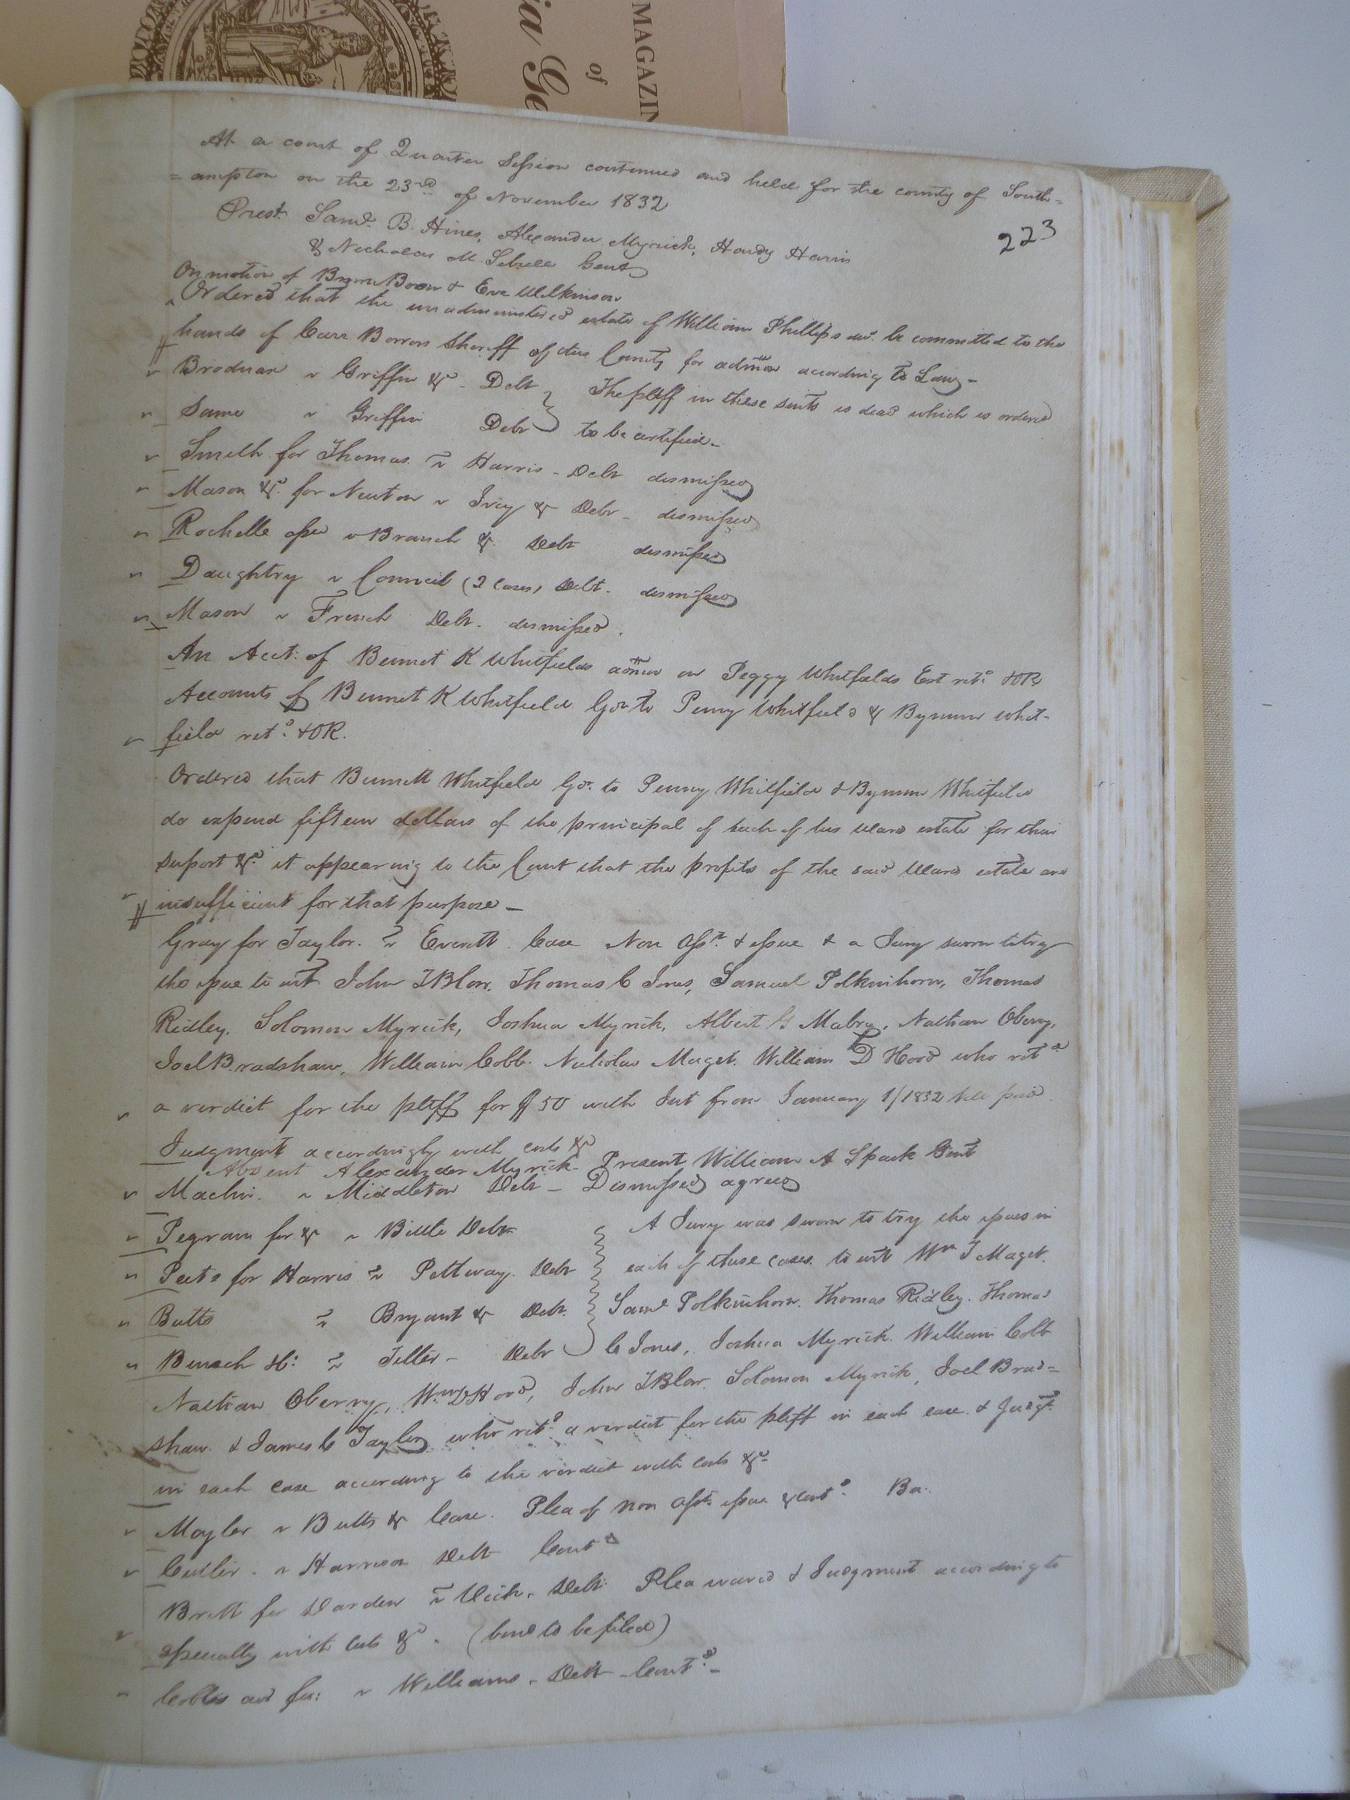 MAGAZIN
of
ia Ge
At a court of Quarter Session continued and held for the county of South=
=ampton on the 23rd of November 1832
223
Prest. Saml. B. Hines, Alexander Myrick, Hardy Harris
& Nicholas M. Sebrell Gents
On motion of Boon & Eve Wilkinson
Ordered that the unadministered estate of William Phillips decd. be committed to the
hands of Carr Bowers Sheriff of this County for admon according to Law -
Brodnax v Griffin &c - Debt } The pltff in these suits is dead which is ordered
Same v Griffin Debt } to be certified -
Smith for Thomas v Harris - Debt dismissed
Mason &c. for Newton v Ivey & Debt - dismissed
Rochelle assee v Branch & Debt dismissed
Daughtry v Council (2 cases) Debt. dismissed
Mason v French Debt. dismissed.
An Acct. of Bennet K Whitfields admon on Peggy Whitfields Est retd. &OR
Accounts of Bennet K Whitfield Gdn to Penny Whitfield & Bynum Whit-
field retd. &OR.
Ordered that Bennett Whitfield Gdn. to Penny Whitfield & Bynum Whitfield
do expend fifteen dollars of the principal of each of his wards estate for their
support &c. it appearing to the Court that the profits of the said Wards estate are
insufficient for that purpose -
Gray for Taylor. v Everett. Case Non Asst. & issue & a Jury sworn to try
the issue to wit John T Blow, Thomas C Jones, Samuel Polkinhorn, Thomas
Ridley, Solomon Myrick, Joshua Myrick, Albert G Mabry, Nathan Oberry,
Joel Bradshaw, William Cobb. Nicholas Maget. William D Hood who retd
a verdict for the pltff for $50 with Int from January 1/1832 till paid
Judgment accordingly with costs &c
Absent Alexander Myrick - Present William A Spark Gent
Maclin. v Middleton Debt - Dismissed agreed
Pegram for & v Bittle Debt } A Jury was sworn to try the issues in
Peete for Harris v Pettway. Debt } each of these cases. to wit Wm T Maget.
Butts v Bryant & Debt. } Saml Polkinhorn. Thomas Ridley. Thomas
v Teller - Debt } C Jones, Joshua Myrick. William Cobb
Nathan Oberry, Wm D Hood, John T Blow. Solomon Myrick, Joel Brad=
shaw. & James C Taylor who retd. a verdict for the pltff in each case. & Judgt.
in each case according to the verdict with costs &c
Mayler v Butts & Case. Plea of non Asst. issue & contd. Ba.
Cutler. v Harrison Debt Contd
Britt for Darden v Vick. Debt. Plea waived & Judgment according to
specialty with costs &c. (bond to be filed)
v Williams. Debt - Contd. -